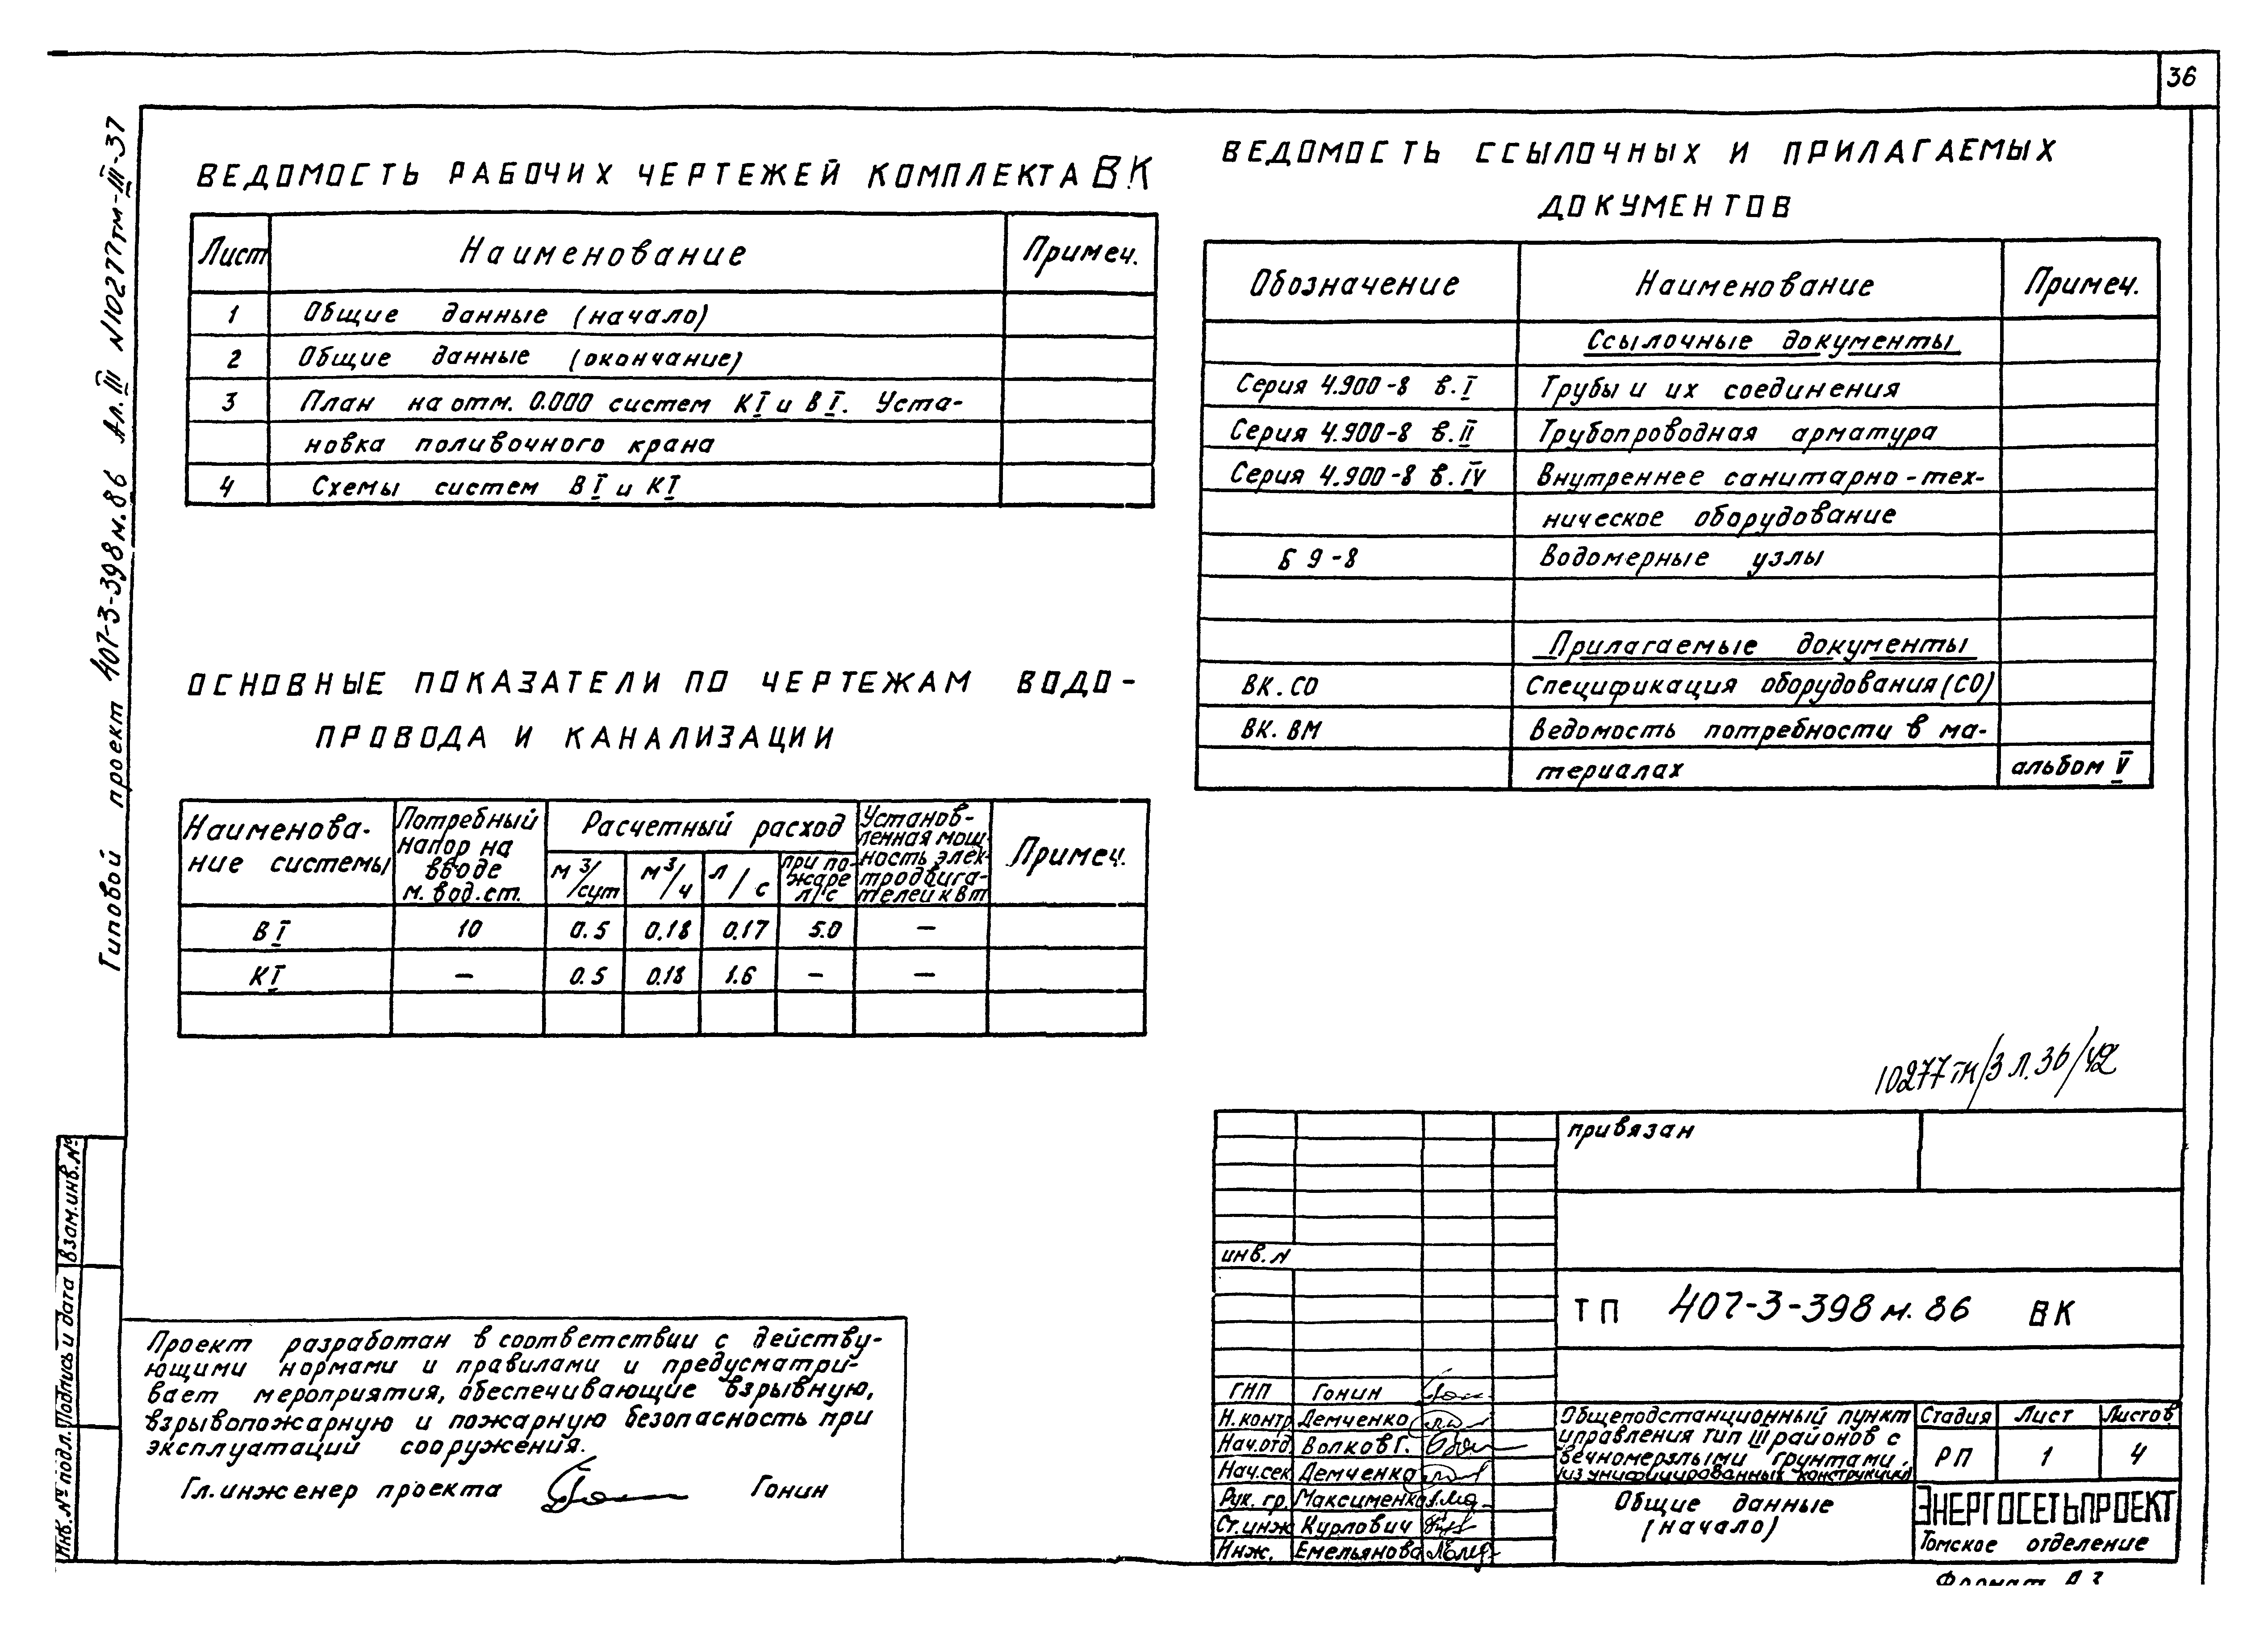 36
Типовой проект 407-3-398м.86 Ал.III N10277тм-III-37
ВЕДОМОСТЬ РАБОЧИХ ЧЕРТЕЖЕЙ КОМПЛЕКТА ВК
Лист Наименование Примеч.
1 Общие данные (начало)
2 Общие данные (окончание)
3 План на отм. 0.000 систем КI и ВI. Уста-
новка поливочного крана
4 Схемы систем ВI и КI
ОСНОВНЫЕ ПОКАЗАТЕЛИ ПО ЧЕРТЕЖАМ ВОДО-
ПРОВОДА И КАНАЛИЗАЦИИ
Наименова-
ние системы
Потребный
напор на
вводе
м. вод.ст.
Расчетный расход
м3/сут
м3/ч
л/с
при по-
жаре
л/с
Установ-
ленная мощ-
ность элек-
тродвига-
телей кВт
Примеч.
ВI 10 0.5 0.18 0.17 5.0 —
КI — 0.5 0.18 1.6 — —
ВЕДОМОСТЬ ССЫЛОЧНЫХ И ПРИЛАГАЕМЫХ
ДОКУМЕНТОВ
Обозначение Наименование Примеч.
Ссылочные документы
Серия 4.900-8 в.I Трубы и их соединения
Серия 4.900-8 в.II Трубопроводная арматура
Серия 4.900-8 в.IV Внутреннее санитарно-тех-
ническое оборудование
Б 9-8 Водомерные узлы
Прилагаемые документы
ВК.СО Спецификация оборудования(СО)
ВК.ВМ Ведомость потребности в ма-
териалах альбом V
10277тм/3 л.36/42
Проект разработан в соответствии с действу-
ющими нормами и правилами и предусматри-
вает мероприятия, обеспечивающие взрывную,
взрывопожарную и пожарную безопасность при
эксплуатации сооружения.
Гл.инженер проекта Гонин
Взам.инв.№
Подпись и дата
Инв.№ подл.
привязан
инв.N
ТП 407-3-398м.86 ВК
ГИП Гонин
Н.контр Демченко
Нач.отд. Волков Г.
Нач.сек. Демченко
Рук. гр. Максименко
Ст.инж Курлович
Инж. Емельянова
Общеподстанционный пункт
управления тип III районов с
вечномерзлыми грунтами.
(из унифицированных конструкций)
Стадия Лист Листов
РП 1 4
Общие данные
(начало)
ЭНЕРГОСЕТЬПРОЕКТ
Томское отделение
Формат А3